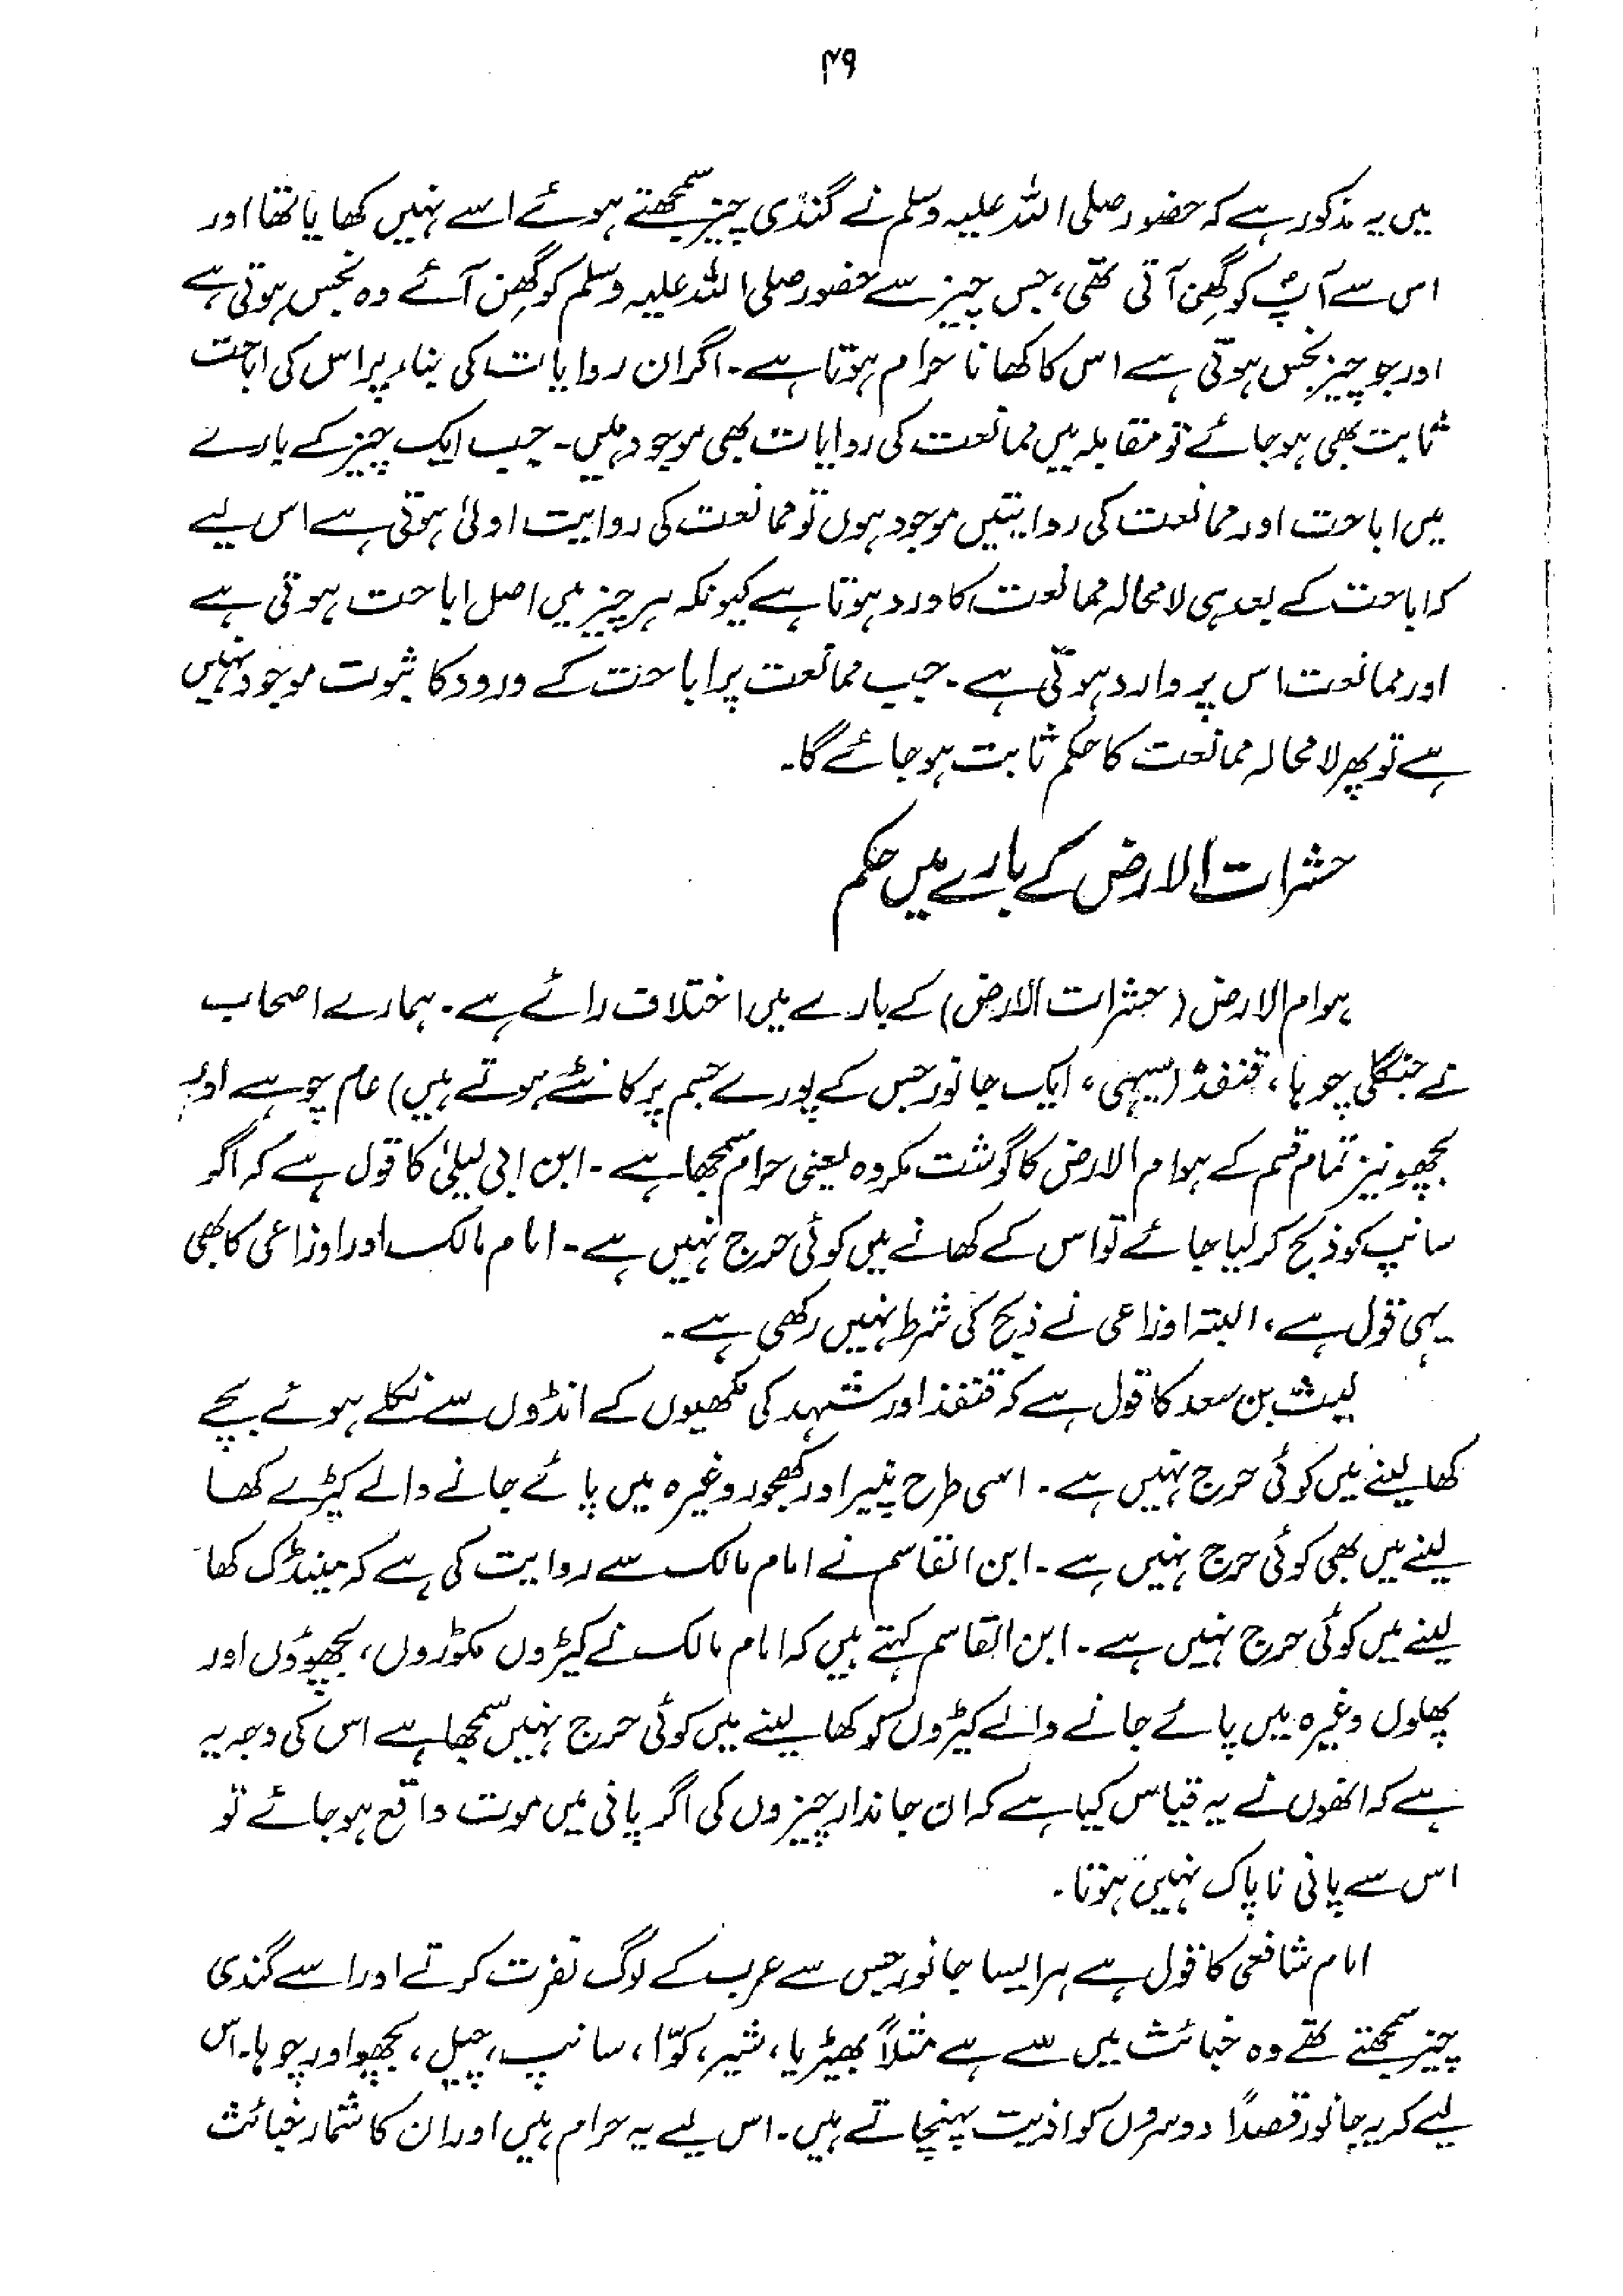 ۴۹
میں یہ مذکور ہے کہ حضور صلی اللہ علیہ وسلم نے گندی چیز سمجھتے ہوئے اسے نہیں کھایا تھا اور
اس سے آپؐ کو گھِن آتی تھی، جس چیز سے حضور صلی اللہ علیہ وسلم کو گھِن آئے وہ نجس ہوتی ہے
اور جو چیز نجس ہوتی ہے اس کا کھانا حرام ہوتا ہے۔ اگر ان روایات کی بناء پر اس کی اباحت
ثابت بھی ہو جائے تو مقابلہ میں ممانعت کی روایات بھی موجود ہیں۔ جب ایک چیز کے بارے
میں اباحت اور ممانعت کی روایتیں موجود ہوں تو ممانعت کی روایت اولیٰ ہوتی ہے اس لیے
کہ اباحت کے بعد ہی لامحالہ ممانعت کا ورد ہوتا ہے کیونکہ ہر چیز میں اصل اباحت ہوتی ہے
اور ممانعت اس پر وارد ہوتی ہے۔ جب ممانعت پر اباحت کے ورود کا ثبوت موجود نہیں
ہے تو پھر لامحالہ ممانعت کا حکم ثابت ہو جائے گا۔
حشرات الارض کے بارے میں حکم
ہوام الارض (حشرات الارض) کے بارے میں اختلاف رائے ہے۔ ہمارے اصحاب
نے جنگلی چوہا، قنفذ (سیہی، ایک جانور جس کے پورے جسم پر کانٹے ہوتے ہیں) عام چوہے اور
بچھو نیز تمام قسم کے ہوام الارض کا گوشت مکروہ یعنی حرام سمجھا ہے۔ ابن ابی لیلیٰ کا قول ہے کہ اگر
سانپ کو ذبح کر لیا جائے تو اس کے کھانے میں کوئی حرج نہیں ہے۔ امام مالک اور اوزاعی کا بھی
یہی قول ہے، البتہ اوزاعی نے ذبح کی شرط نہیں رکھی ہے۔
لیث بن سعد کا قول ہے کہ قنفذ اور شہد کی مکھیوں کے انڈوں سے نکلے ہوئے بچے
کھا لینے میں کوئی حرج نہیں ہے۔ اسی طرح پنیر اور کھجور وغیرہ میں پائے جانے والے کیڑے کھا
لینے میں بھی کوئی حرج نہیں ہے۔ ابن القاسم نے امام مالک سے روایت کی ہے کہ مینڈک کھا
لینے میں کوئی حرج نہیں ہے۔ ابن القاسم کہتے ہیں کہ امام مالک نے کیڑوں مکوڑوں، بچھوؤں اور
پھلوں وغیرہ میں پائے جانے والے کیڑوں کو کھا لینے میں کوئی حرج نہیں سمجھا ہے اس کی وجہ یہ
ہے کہ انھوں نے یہ قیاس کیا ہے کہ ان جاندار چیزوں کی اگر پانی میں موت واقع ہو جائے تو
اس سے پانی ناپاک نہیں ہوتا۔
امام شافعی کا قول ہے ہر ایسا جانور جس سے عرب کے لوگ نفرت کرتے اور اسے گندی
چیز سمجھتے تھے وہ خبائث میں سے ہے مثلاً بھیڑیا، شیر، کوّا، سانپ، چیل، بچھو اور چوہا۔ اس
لیے کہ یہ جانور قصداً دوسروں کو اذیت پہنچاتے ہیں۔ اس لیے یہ حرام ہیں اور ان کا شمار خبائث